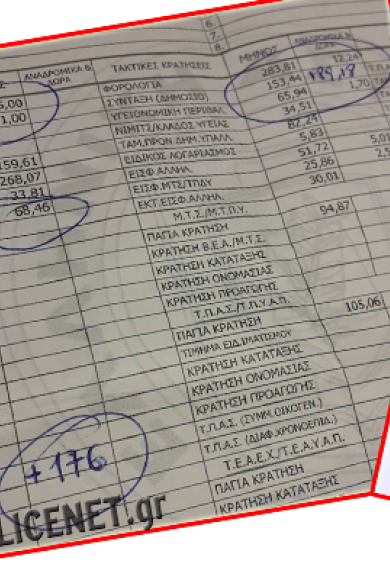 6.
7.
8.
Σ ΑΝΑΔΡΟΜΙΚΑ & ΔΩΡΑ ΤΑΚΤΙΚΕΣ ΚΡΑΤΗΣΕΙΣ ΜΗΝΟΣ ΑΝΑΔΡΟΜΙΚΑ & ΔΩΡΑ
5,00 ΦΟΡΟΛΟΓΙΑ 283,81 12,24
1,00 ΣΥΝΤΑΞΗ (ΔΗΜΟΣΙΟ) 153,44
ΥΓΕΙΟΝΟΜΙΚΗ ΠΕΡΙΘΑΛ. 65,94 1,70 Τ.Π.
ΝΙΜΙΤΣ/ΚΛΑΔΟΣ ΥΓΕΙΑΣ 34,51
159,61 ΤΑΜ.ΠΡΟΝ ΔΗΜ.ΥΠΑΛΛ. 82,24
268,07 ΕΙΔΙΚΟΣ ΛΟΓΑΡΙΑΣΜΟΣ 5,83
33,81 ΕΙΣΦ.ΑΛΛΗΛ. 51,72 5,01
68,46 ΕΙΣΦ.ΜΤΣ/ΤΠΔΥ 25,86 2,5
ΕΚΤ.ΕΙΣΦ.ΑΛΛΗΛ. 30,01
Μ.Τ.Σ./Μ.Τ.Π.Υ.
ΠΑΓΙΑ ΚΡΑΤΗΣΗ 94,87
ΚΡΑΤΗΣΗ Β.Ε.Α./Μ.Τ.Σ.
ΚΡΑΤΗΣΗ ΚΑΤΑΤΑΞΗΣ
ΚΡΑΤΗΣΗ ΟΝΟΜΑΣΙΑΣ
ΚΡΑΤΗΣΗ ΠΡΟΑΓΩΓΗΣ
Τ.Π.Α.Σ./Τ.Π.Υ.Α.Π.
ΠΑΓΙΑ ΚΡΑΤΗΣΗ 105,06
ΤΙΜΗΜΑ ΕΙΔ.ΙΜΑΤΙΣΜΟΥ
ΚΡΑΤΗΣΗ ΚΑΤΑΤΑΞΗΣ
ΚΡΑΤΗΣΗ ΟΝΟΜΑΣΙΑΣ
ΚΡΑΤΗΣΗ ΠΡΟΑΓΩΓΗΣ
Τ.Π.Α.Σ. (ΣΥΜΜ.ΟΙΚΟΓΕΝ.)
Τ.Π.Α.Σ. (ΔΙΑΦ.ΧΡΟΝΟΕΠΙΔ.)
Τ.Ε.Α.Ε.Χ./Τ.Ε.Α.Υ.Α.Π.
ΠΑΓΙΑ ΚΡΑΤΗΣΗ
ΚΡΑΤΗΣΗ ΚΑΤΑΤΑΞΗΣ
+176
LICENET.gr